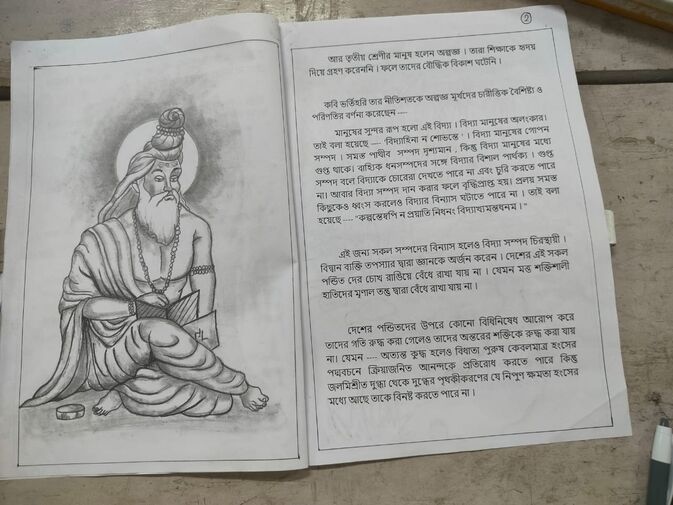 ২
আর তৃতীয় শ্রেণীর মানুষ হলেন অল্পজ্ঞ । তারা শিক্ষাকে হৃদয়
দিয়ে গ্রহণ করেননি । ফলে তাদের বৌদ্ধিক বিকাশ ঘটেনি ।
কবি ভর্তিহরি তার নীতিশতকে অল্পজ্ঞ মূর্খদের চারীত্তিক বৈশিষ্ট্য ও
পরিণতির বর্ণনা করেছেন ----
মানুষের সুন্দর রূপ হলো এই বিদ্যা । বিদ্যা মানুষের অলংকার।
তাই বলা হয়েছে ---- 'বিদ্যাহিনা ন শোভন্তে' । বিদ্যা মানুষের গোপন
সম্পদ । সমস্ত পার্থীব সম্পদ দৃশ্যমান , কিন্তু বিদ্যা মানুষের মধ্যে
গুপ্ত থাকে। বাহ্যিক ধনসম্পদের সঙ্গে বিদ্যার বিশাল পার্থক্য । গুপ্ত
সম্পদ বলে বিদ্যাকে চোরেরা দেখতে পারে না এবং চুরি করতে পারে
না। আবার বিদ্যা সম্পদ দান করার ফলে বৃদ্ধিপ্রাপ্ত হয়। প্রলয় সমস্ত
কিছুকেও ধ্বংস করলেও বিদ্যার বিন্যাস ঘটাতে পারে না । তাই বলা
হয়েছে ---- "কল্পান্তেষ্বপি ন প্রয়াতি নিধনং বিদ্যাখ্যমন্তধনম ।"
এই জন্য সকল সম্পদের বিন্যাস হলেও বিদ্যা সম্পদ চিরস্থায়ী ।
বিদ্বান ব্যক্তি তপস্যার দ্বারা জ্ঞানকে অর্জন করেন । দেশের এই সকল
পন্ডিত দের চোখ রাঙিয়ে বেঁধে রাখা যায় না । যেমন মত্ত শক্তিশালী
হাতিদের মৃণাল তন্তু দ্বারা বেঁধে রাখা যায় না ।
দেশের পন্ডিতদের উপরে কোনো বিধিনিষেধ আরোপ করে
তাদের গতি রুদ্ধ করা গেলেও তাদের অন্তরের শক্তিকে রুদ্ধ করা যায়
না। যেমন ---- অত্যন্ত ক্রুদ্ধ হলেও বিধাতা পুরুষ কেবলমাত্র হংসের
পদ্মবচনে ক্রিয়াজনিত আনন্দকে প্রতিরোধ করতে পারে কিন্তু
জলমিশ্রীত দুগ্ধা থেকে দুগ্ধের পৃথকীকরণের যে নিপুণ ক্ষমতা হংসের
মধ্যে আছে তাকে বিনষ্ট করতে পারে না ।